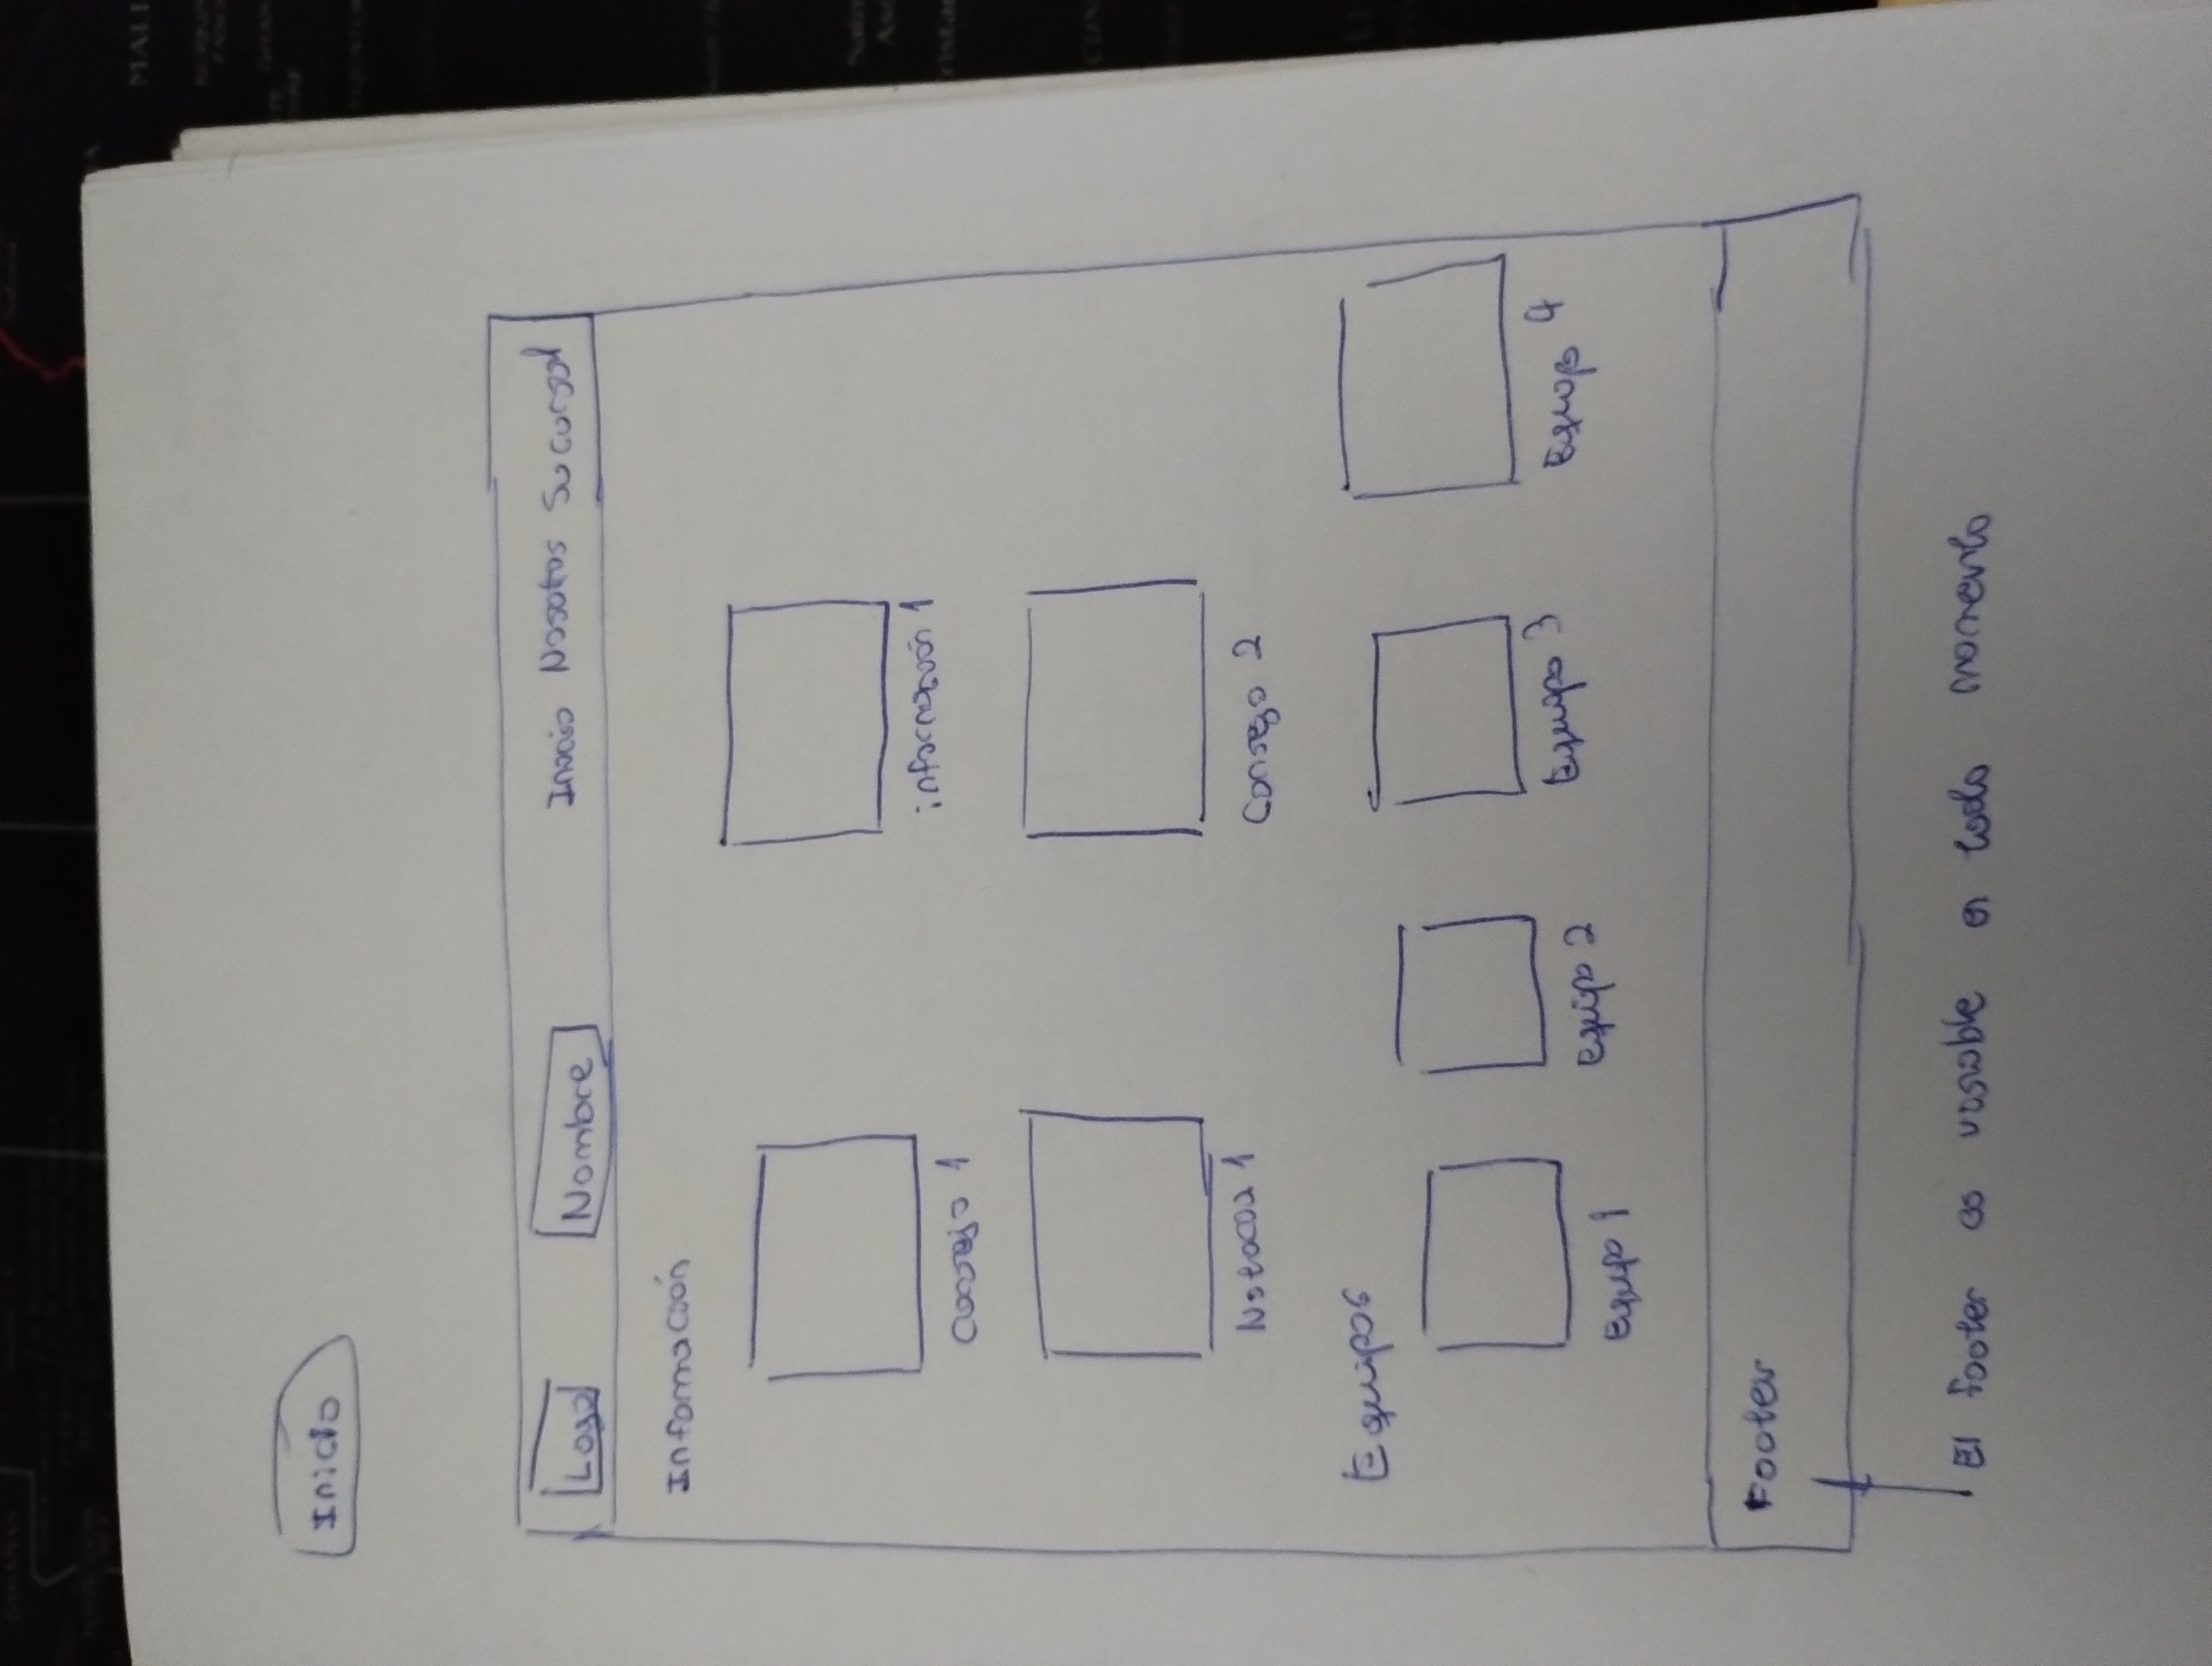 Inicio
Logo Nombre Inicio Nosotros Sucursal
Información
Consejo 1 información 1
Noticia 1 Consejo 2
Equipos
Equipo 1 Equipo 2 Equipo 3 Equipo 4
Footer
El footer es visible en todo momento